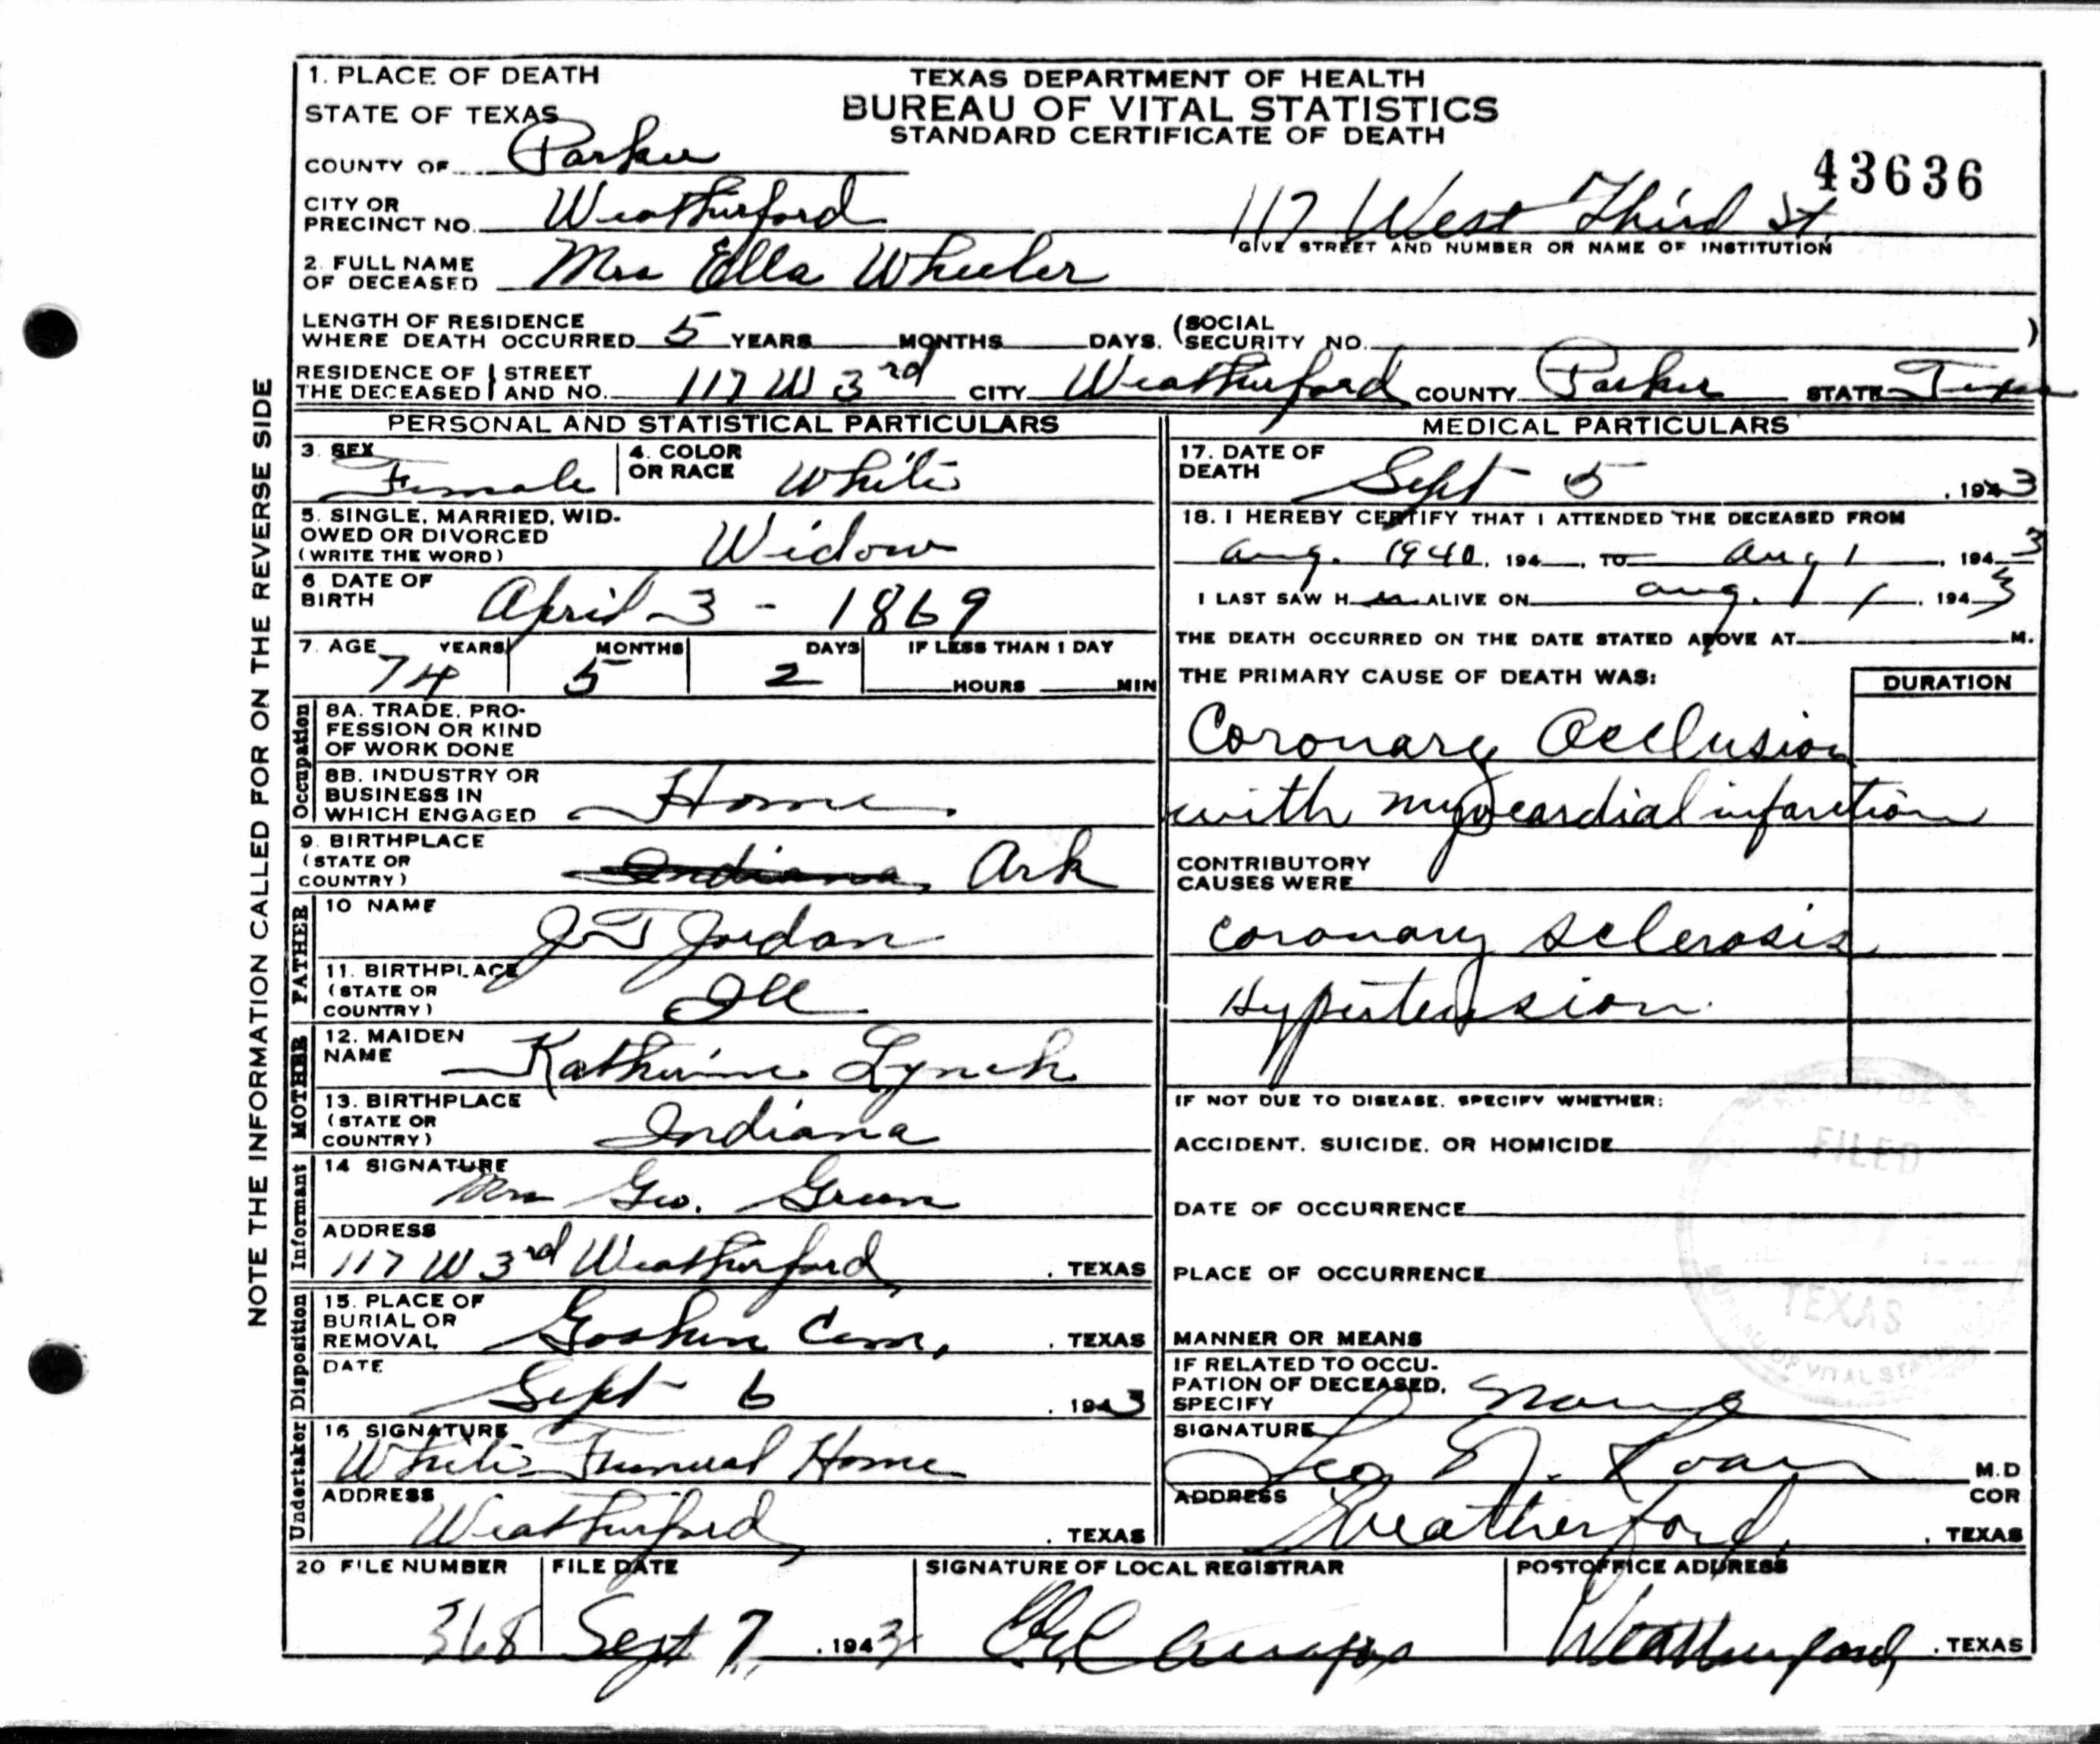 NOTE THE INFORMATION CALLED FOR ON THE REVERSE SIDE
1. PLACE OF DEATH
STATE OF TEXAS
COUNTY OF Parker
TEXAS DEPARTMENT OF HEALTH
BUREAU OF VITAL STATISTICS
STANDARD CERTIFICATE OF DEATH
43636
CITY OR
PRECINCT NO. Weatherford 117 West Third St.
GIVE STREET AND NUMBER OR NAME OF INSTITUTION
2. FULL NAME
OF DECEASED Mrs Ella Wheeler
LENGTH OF RESIDENCE
WHERE DEATH OCCURRED 5 YEARS MONTHS DAYS. (SOCIAL
SECURITY NO. )
RESIDENCE OF THE DECEASED STREET AND NO. 117 W 3rd CITY Weatherford COUNTY Parker STATE Texas
PERSONAL AND STATISTICAL PARTICULARS
3. SEX Female
4. COLOR
OR RACE White
5. SINGLE, MARRIED, WID-
OWED OR DIVORCED
(WRITE THE WORD) Widow
6 DATE OF
BIRTH April 3 - 1869
7. AGE YEARS MONTHS DAYS IF LESS THAN 1 DAY
74 5 2 HOURS MIN
Occupation
8A. TRADE, PRO-
FESSION OR KIND
OF WORK DONE
8B. INDUSTRY OR
BUSINESS IN
WHICH ENGAGED Home
9. BIRTHPLACE
(STATE OR
COUNTRY) Indiana, Ark
FATHER
10 NAME J T Jordan
11. BIRTHPLACE
(STATE OR
COUNTRY) Ill
MOTHER
12. MAIDEN
NAME Katherine Lynch
13. BIRTHPLACE
(STATE OR
COUNTRY) Indiana
Informant
14 SIGNATURE Mrs Geo. Green
ADDRESS
117 W 3rd Weatherford, . TEXAS
Disposition
15. PLACE OF
BURIAL OR
REMOVAL Goshen Cem, . TEXAS
DATE
Sept 6 . 1943
Undertaker
16 SIGNATURE
White Funeral Home
ADDRESS
Weatherford, . TEXAS
MEDICAL PARTICULARS
17. DATE OF
DEATH Sept 5 . 1943
18. I HEREBY CERTIFY THAT I ATTENDED THE DECEASED FROM
Aug. 1940, 194 , TO Aug 1 , 1943
I LAST SAW H er ALIVE ON Aug. 1 , 1943
THE DEATH OCCURRED ON THE DATE STATED ABOVE AT M.
THE PRIMARY CAUSE OF DEATH WAS: DURATION
Coronary Occlusion
with myocardial infarction
CONTRIBUTORY
CAUSES WERE
coronary sclerosis
Hypertension
IF NOT DUE TO DISEASE, SPECIFY WHETHER:
ACCIDENT, SUICIDE, OR HOMICIDE
DATE OF OCCURRENCE
PLACE OF OCCURRENCE
MANNER OR MEANS
FILED
TEXAS
IF RELATED TO OCCU-
PATION OF DECEASED,
SPECIFY None
SIGNATURE
M.D
ADDRESS COR
Weatherford, . TEXAS
20 FILE NUMBER FILE DATE SIGNATURE OF LOCAL REGISTRAR POSTOFFICE ADDRESS
368 Sept 7, . 1943 Weatherford, . TEXAS